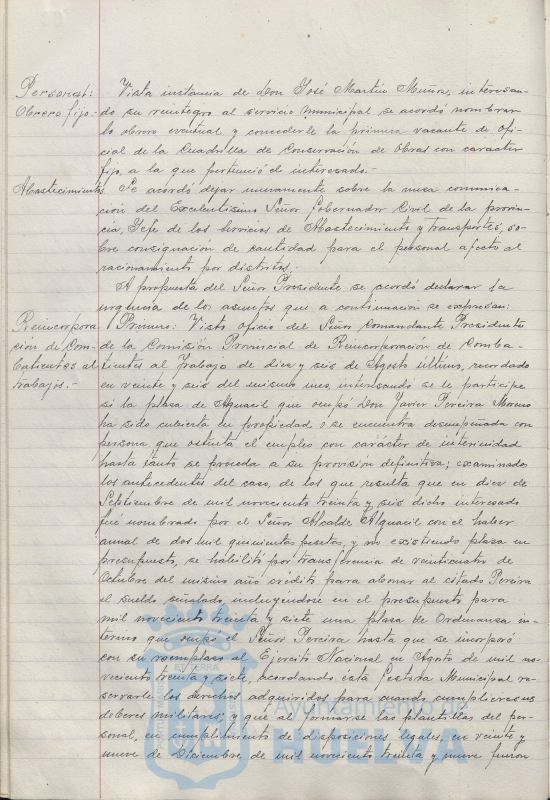 Personal: Vista instancia de Don José Martín Muñoz, interesan-
Obrero fijo.- do su reintegro al servicio municipal se acordó nombrar-
lo obrero eventual y concederle la primera vacante de ofi-
cial de la Cuadrilla de Conservación de Obras con carácter
fijo, a la que perteneció el interesado.-
Abastecimientos. Se acordó dejar nuevamente sobre la mesa comunica-
ción del Excelentísimo Señor Gobernador Civil de la provin-
cia, Jefe de los Servicios de Abastecimiento y transportes, so-
bre consignación de cantidad para el personal afecto al
racionamiento por distritos.-
A propuesta del Señor Presidente, se acordó declarar la
urgencia de los asuntos que a continuación se expresan:
Reincorpora Primero: Visto oficio del Señor Comandante Presidente
ción de Com- de la Comisión Provincial de Reincorporación de Comba-
batientes al tientes al Trabajo de diez y seis de Agosto último, recordado
trabajo.- en veinte y seis del mismo mes, interesando se le participe
si la plaza de Aguacil que ocupó Don Javier Pereira Moreno
ha sido cubierta en propiedad o se encuentra desempeñada con
persona que ostenta el empleo con carácter de interinidad
hasta tanto se proceda a su provisión definitiva; examinados
los antecedentes del caso, de los que resulta que en diez de
Septiembre de mil novecientos treinta y seis dicho interesado
fué nombrado por el Señor Alcalde Alguacil con el haber
anual de dos mil quinientas pesetas, y no existiendo plaza en
presupuesto, se habilitó por transferencia de veinticuatro de
Octubre del mismo año crédito para abonar al citado Pereira
el sueldo señalado incluyéndose en el presupuesto para
mil novecientos treinta y siete una plaza de Ordenanza in-
terino que ocupó el Señor Pereira hasta que se incorporó
con su reemplazo al Ejercito Nacional en Agosto de mil no-
vecientos treinta y siete, acordando esta Gestora Municipal re-
servarle los derechos adquiridos para cuando cumpliese sus
deberes militares; y que al formarse las plantillas del per-
sonal, en cumplimiento de disposiciones legales, en veinte y
nueve de Diciembre de mil novecientos treinta y nueve fueron
Ayuntamiento de
HUELVA